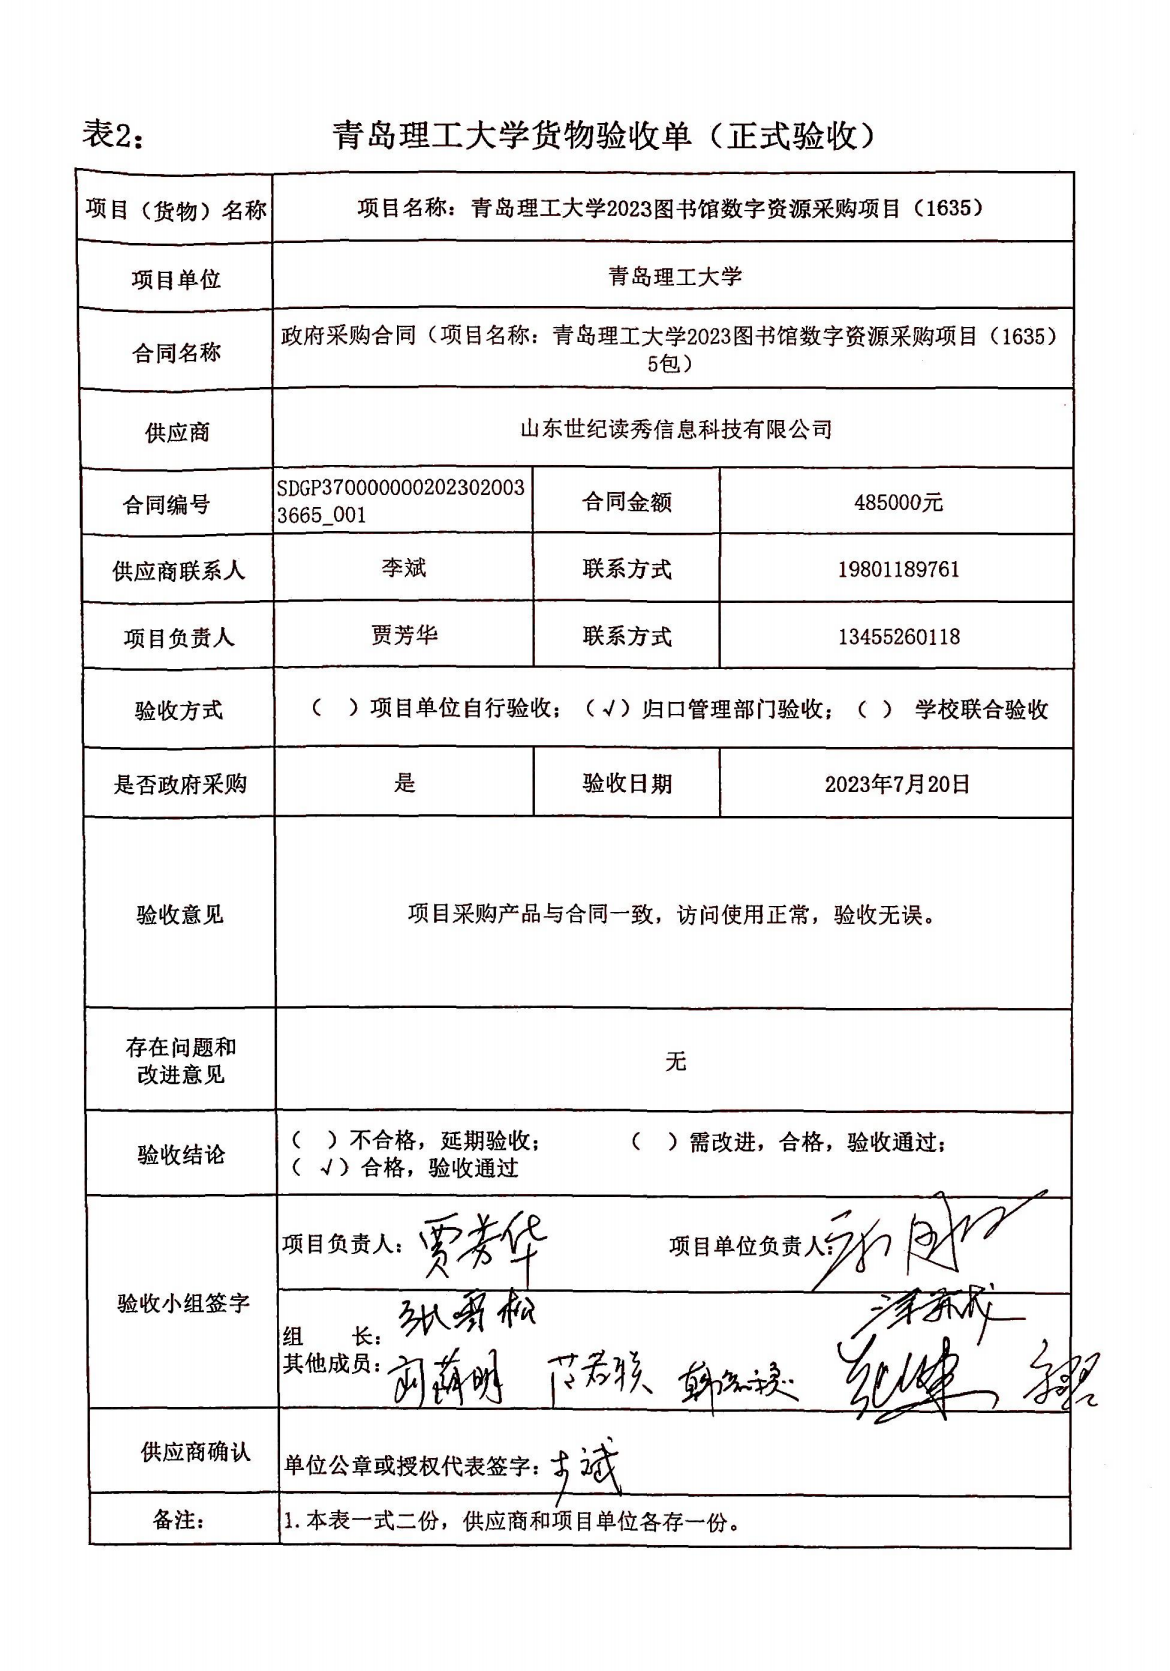 表2：
青岛理工大学货物验收单（正式验收）
项目（货物）名称
项目名称：青岛理工大学2023图书馆数字资源采购项目（1635）
项目单位
青岛理工大学
合同名称
政府采购合同（项目名称：青岛理工大学2023图书馆数字资源采购项目（1635）
5包）
供应商
山东世纪读秀信息科技有限公司
合同编号
SDGP370000000202302003
3665_001
合同金额
485000元
供应商联系人
李斌
联系方式
19801189761
项目负责人
贾芳华
联系方式
13455260118
验收方式
（　）项目单位自行验收；（√）归口管理部门验收；（　） 学校联合验收
是否政府采购
是
验收日期
2023年7月20日
验收意见
项目采购产品与合同一致，访问使用正常，验收无误。
存在问题和
改进意见
无
验收结论
（　）不合格，延期验收；　　　　（　）需改进，合格，验收通过；
（ √）合格，验收通过
验收小组签字
项目负责人：贾芳华
项目单位负责人：
组　　长：张雪松
其他成员：
供应商确认
单位公章或授权代表签字：李斌
备注：
1.本表一式二份，供应商和项目单位各存一份。